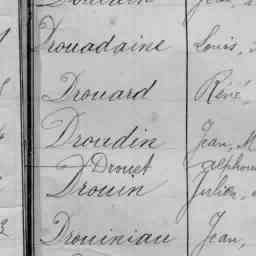 Drouadaine Louis,
Drouard Réné,
Droudin Jean, M
Drouet alphon
Drouin Julien,
Drouiniau Jean,
3